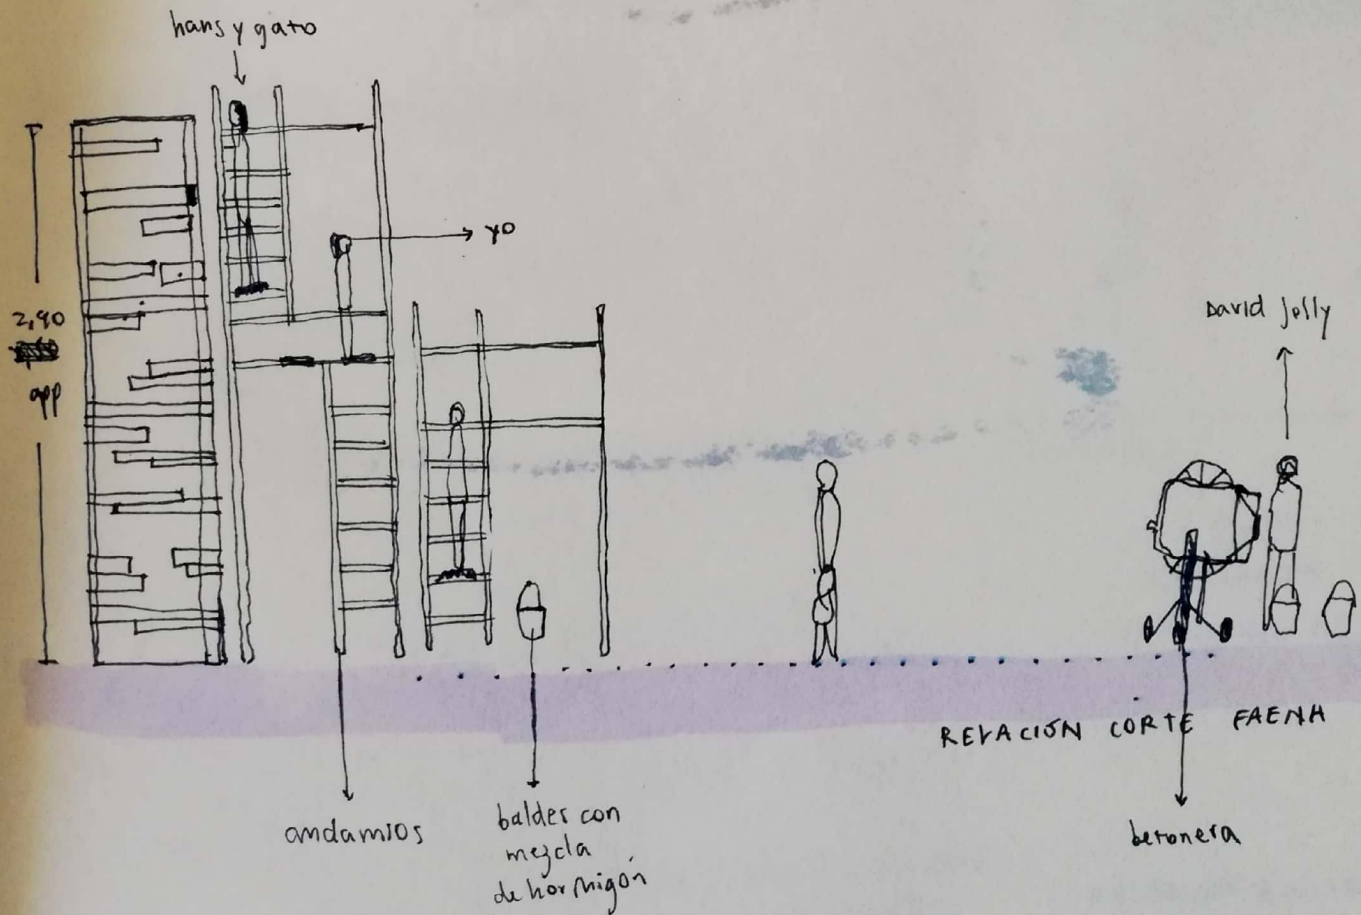 hans y gato
yo
David Jolly
2,90
app
RELACIÓN CORTE FAENA
andamios
baldes con
mezcla
de hormigón
betonera